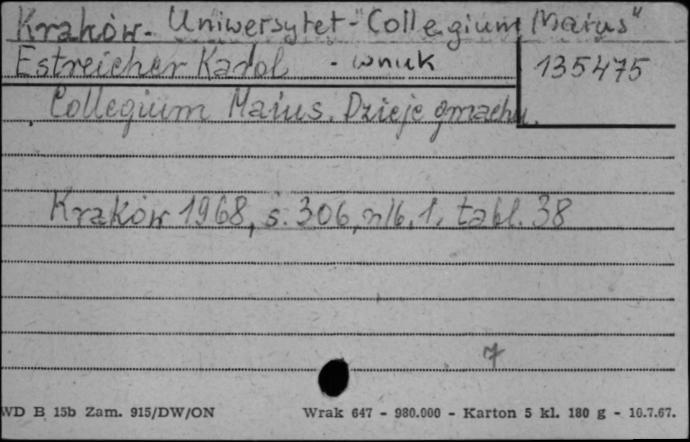 Kraków - Uniwersytet - "Collegium Maius"
Estreicher Karol - wnuk 135475
Collegium Maius. Dzieje gmachu.
Kraków 1968, s. 306, nlb. 1, tabl. 38
7
WD B 15b Zam. 915/DW/ON Wrak 647 - 980.000 - Karton 5 kl. 180 g - 10.7.67.